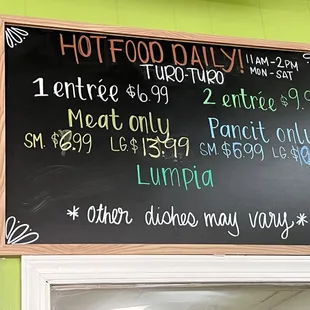 HOT FOOD DAILY! 11AM-2PM
TURO-TURO MON-SAT
1 entrée $6.99 2 entrée $9.9
Meat only Pancit only
SM. $6.99 LG.$13.99 SM. $5.99 LG.$
Lumpia
* other dishes may vary *